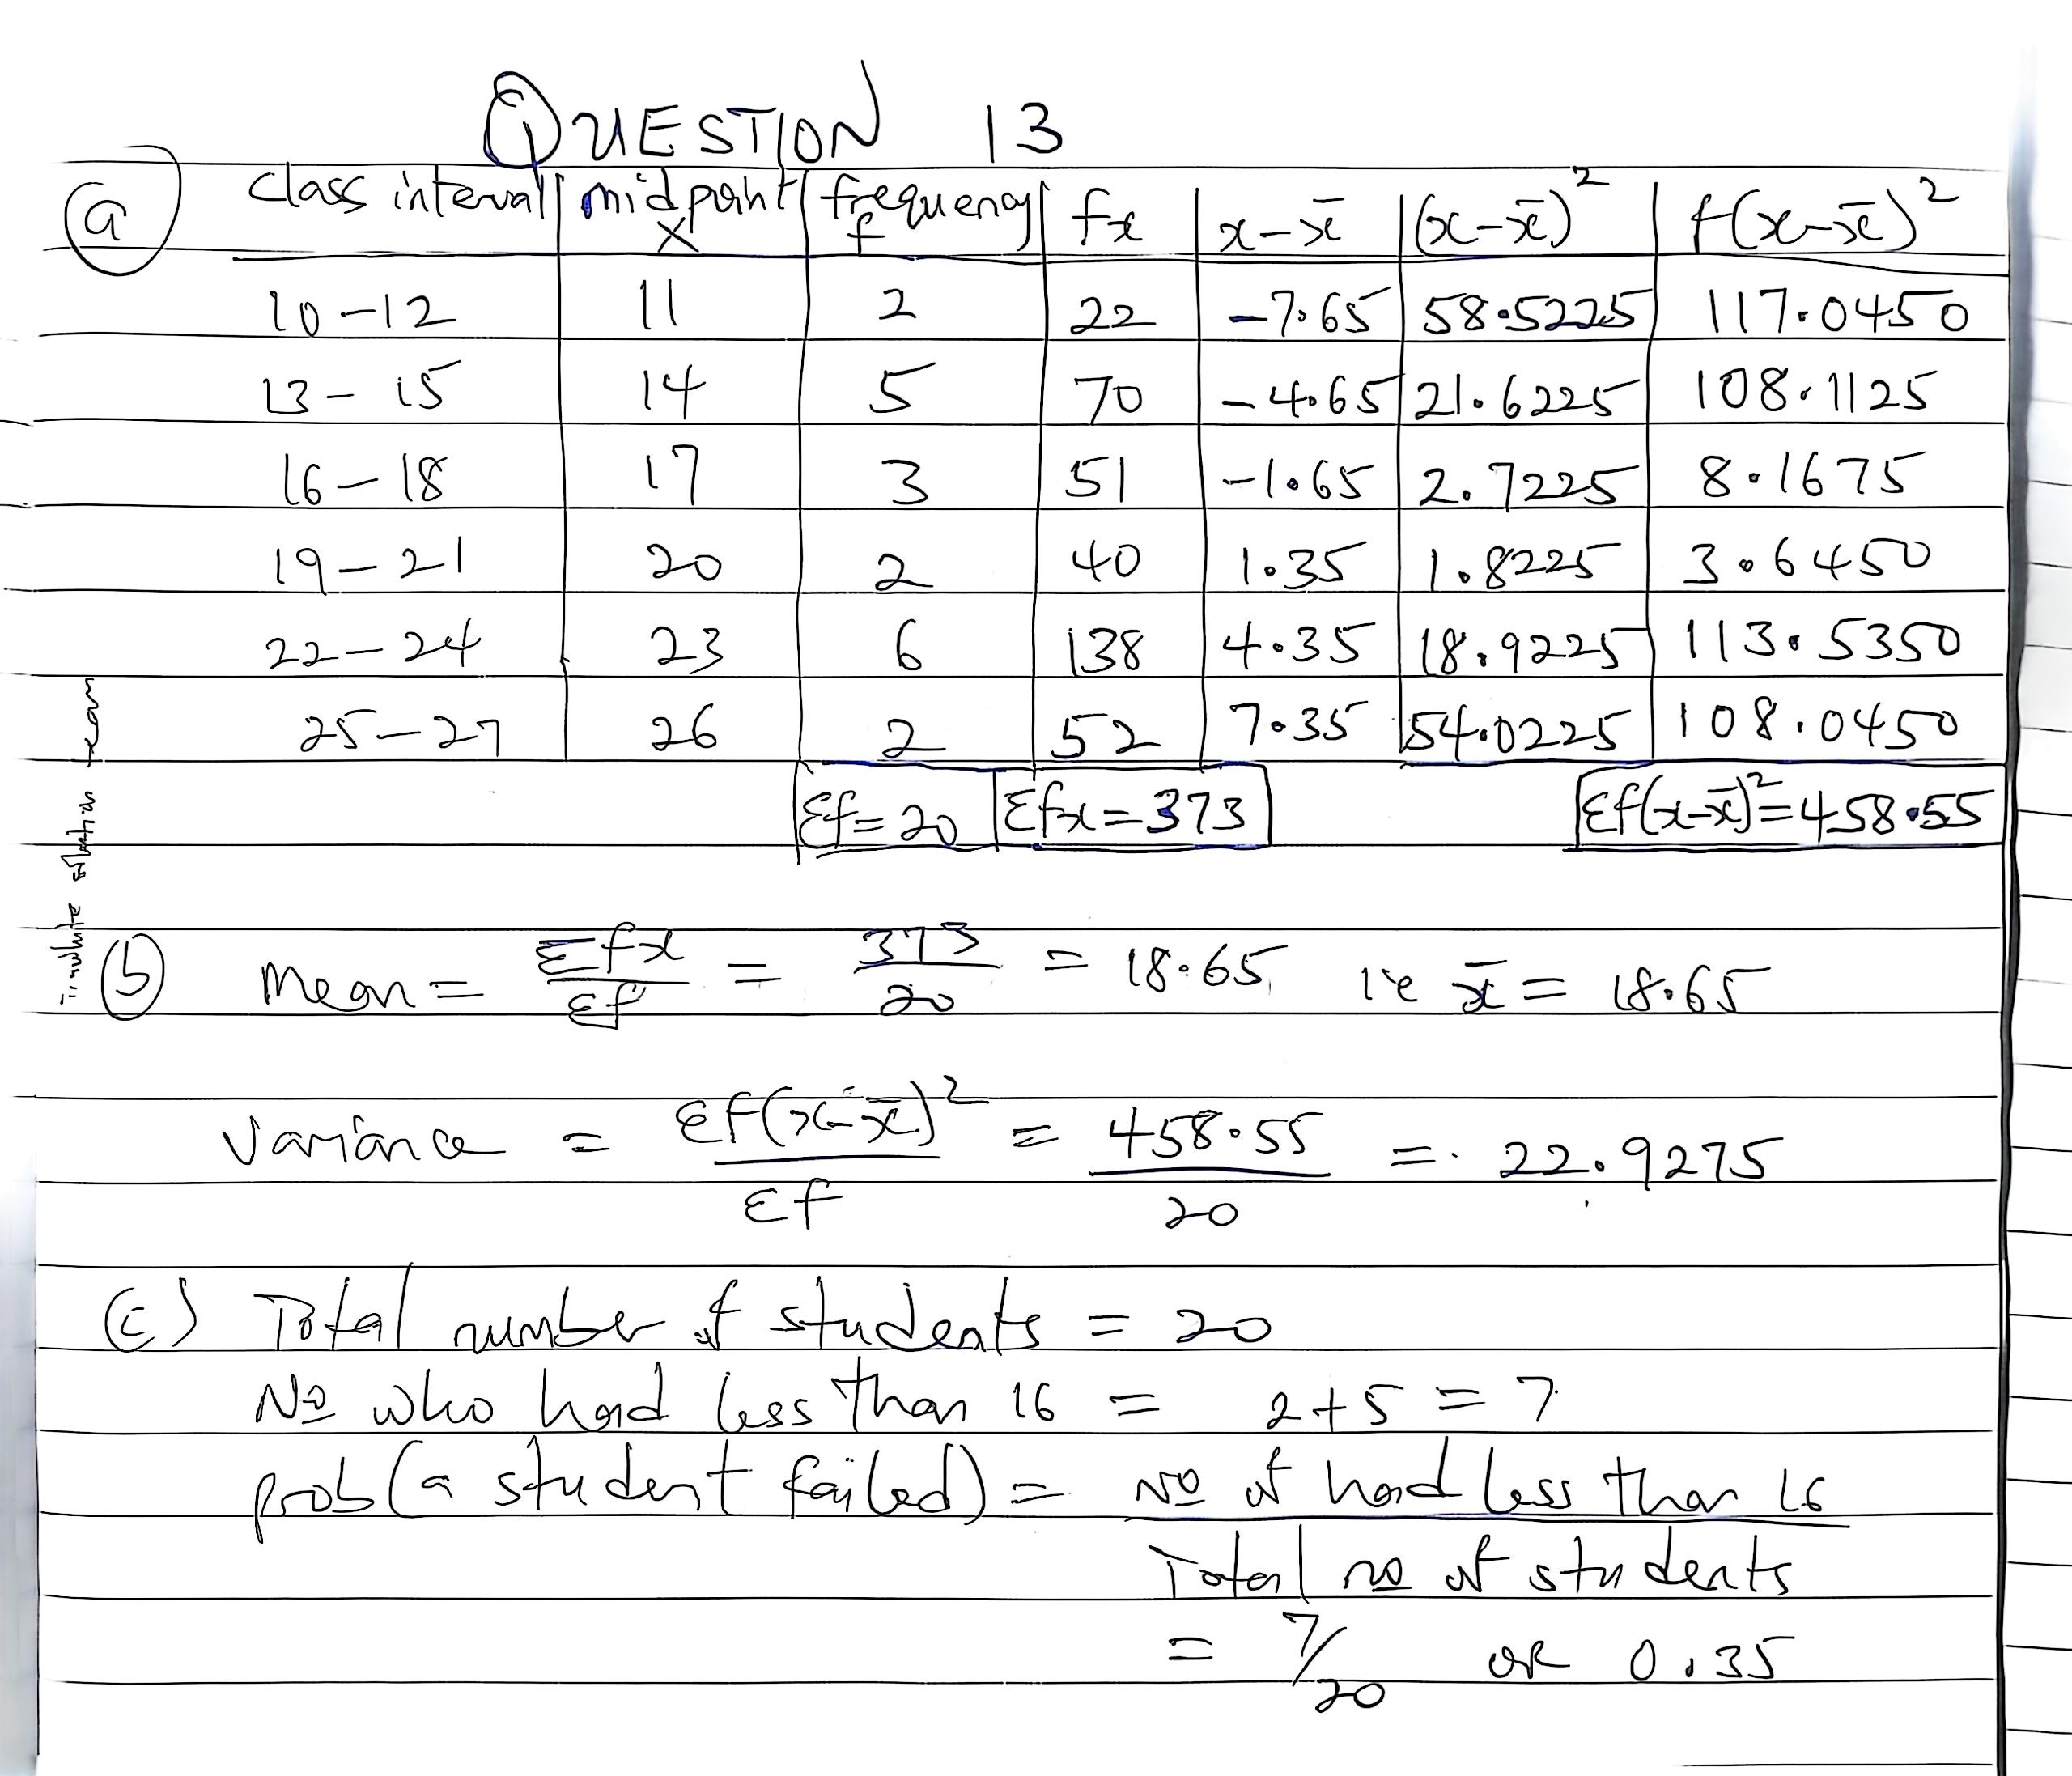 QUESTION 13
(a) class interval | midpoint x | frequency f | fx | x-x̄ | (x-x̄)² | f(x-x̄)²
10-12 | 11 | 2 | 22 | -7.65 | 58.5225 | 117.0450
13-15 | 14 | 5 | 70 | -4.65 | 21.6225 | 108.1125
16-18 | 17 | 3 | 51 | -1.65 | 2.7225 | 8.1675
19-21 | 20 | 2 | 40 | 1.35 | 1.8225 | 3.6450
22-24 | 23 | 6 | 138 | 4.35 | 18.9225 | 113.5350
25-27 | 26 | 2 | 52 | 7.35 | 54.0225 | 108.0450
Σf=20 | Σfx=373 | Σf(x-x̄)²=458.55
(b) Mean = Σfx/Σf = 373/20 = 18.65 i.e x̄ = 18.65
Variance = Σf(x-x̄)²/Σf = 458.55/20 = 22.9275
(c) Total number of students = 20
No who had less than 16 = 2+5 = 7
prob (a student failed) = No of had less than 16
Total no of students
= 7/20 or 0.35